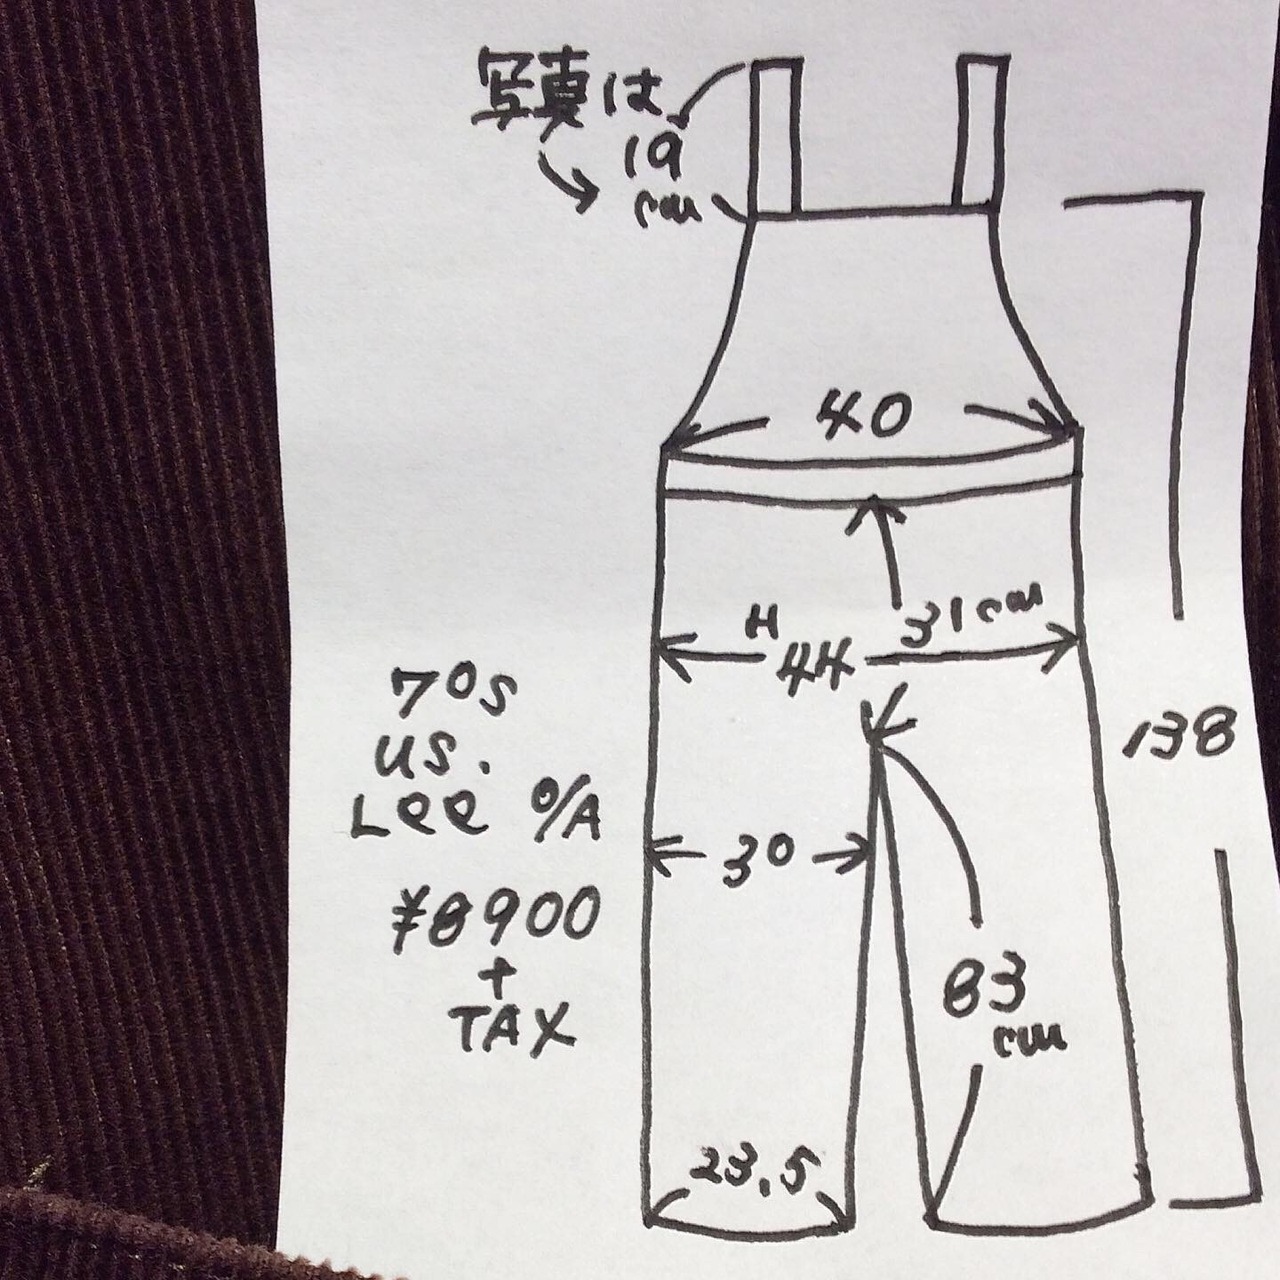 写真は
19
cm
40
31cm
H
44
138
70s
US.
Lee O/A
30
¥8900
+
TAX
83
cm
23.5